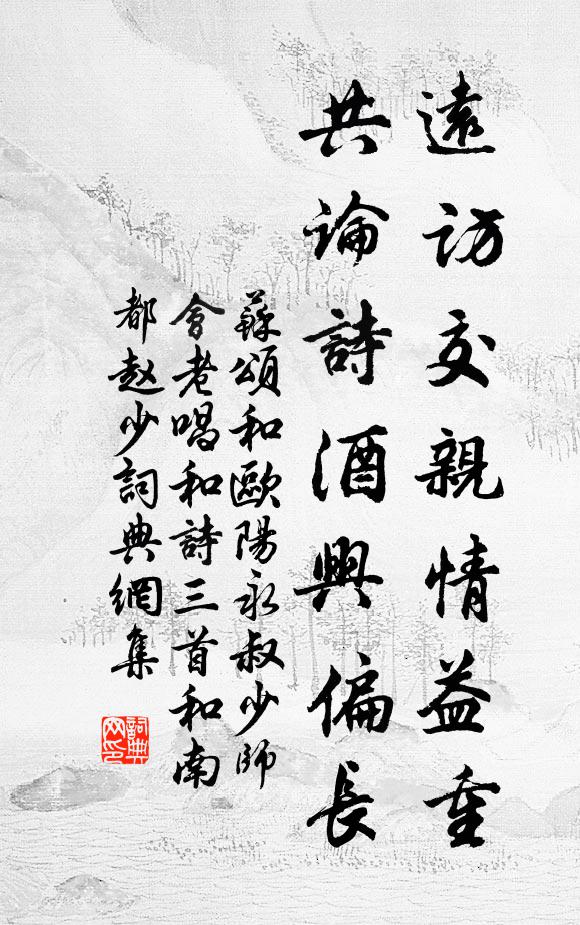 遠訪交親情益重
共論詩酒興偏長
蘇頌和歐陽永叔少師
會老唱和詩三首和南
都赵少詞典網集
詞典
网印